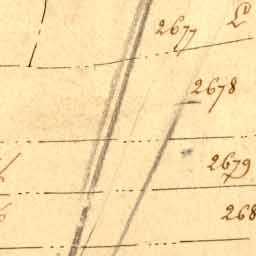 2677
2678
2679
268